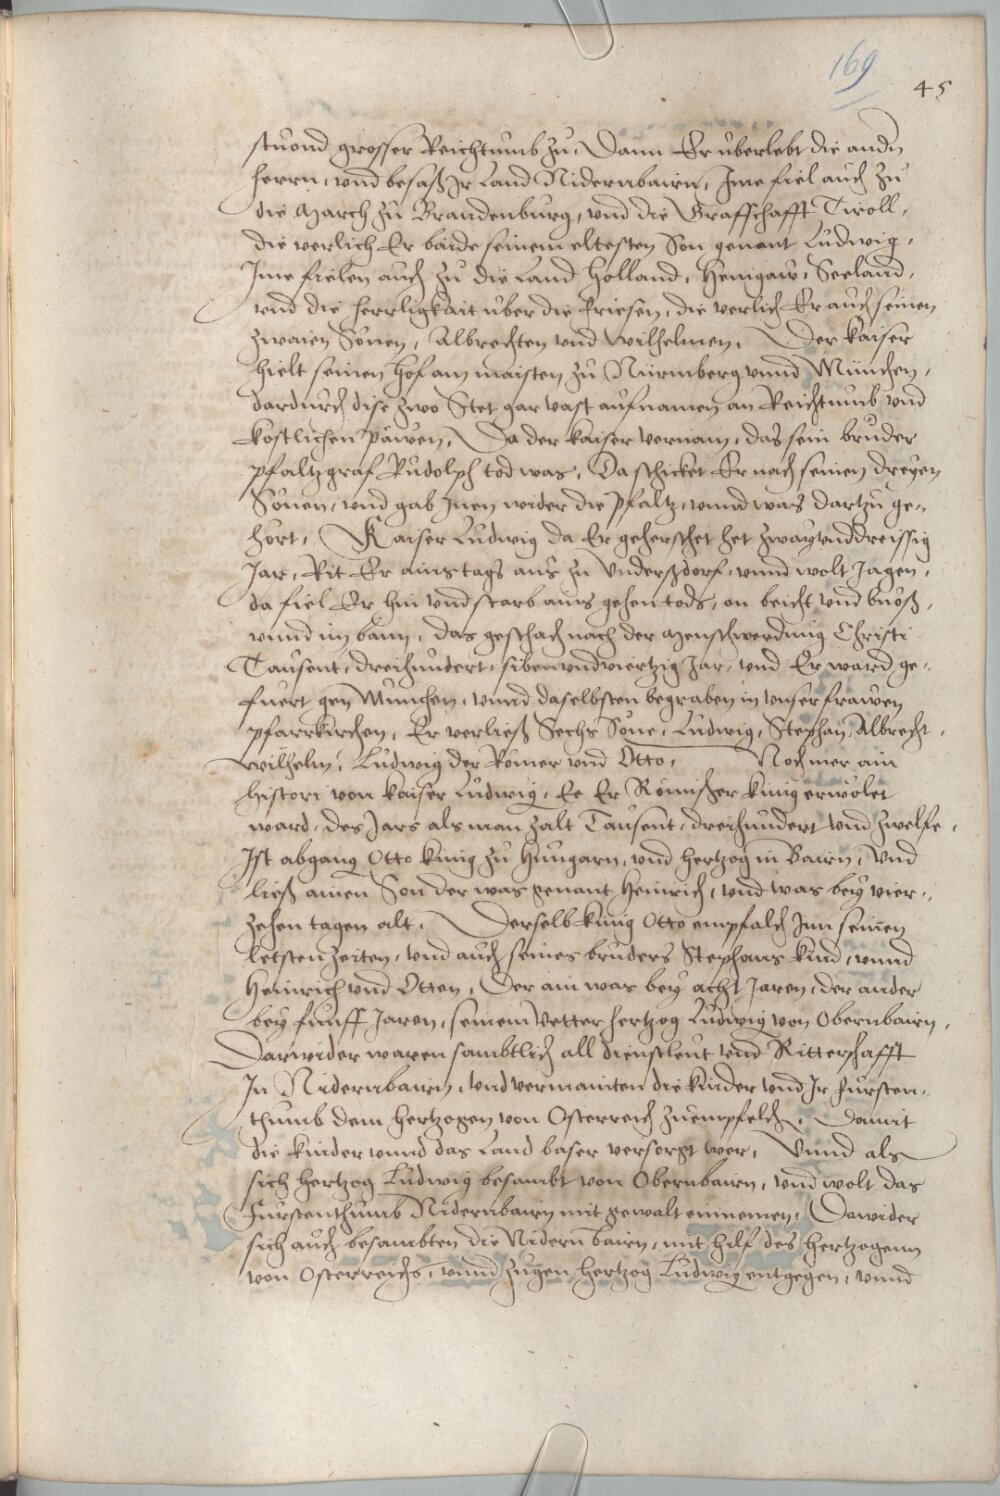 169
45
stuond grosser Reichtumb zu, Dann Er uberlebt die andn
herrn, und besaß Ir Land Nidernbairn, Ime fiel auch zu
die March zu Brandenburg, und die Graffschafft Tiroll,
die verlich Er baide seinem eltesten Son genant Ludwig,
Ime fielen auch zu die Land Holland, Henigaw, Seeland,
und die herrligkait uber die friesen, die verlich Er auch seinen
zwaien Sönen, Albrechten und Wilhelmen, Der kaiser
hielt seinen hof am maisten zu Nürmberg unnd München,
dardurch dise zwo Stet gar vast aufnamen an Reichtumb und
köstlichen päwen, Da der kaiser vernam, das sein bruder
pfaltzgraf Rudolph tod was, Da schicket Er nach seinen dreyen
Sönen, und gab Inen wider die Pfaltz, unnd was dartzu ge-
hört, Kaiser Ludwig da Er geherschet het zwayunddreissig
Jar, Rit Er ains tags aus zu Underßdorf, unnd wolt Jagen,
da fiel Er hin und starb ains gehen tods, on beicht und buoß,
unnd im bann, das geschach nach der Menschwerdung Christi
Tausent, dreihundert, sibenundviertzig Jar, und Er ward ge-
fuert gen München, unnd daselbsten begraben in unser frawen
pfarrkirchen, Er verließ Sechs Söne, Ludwig, Stephan, Albrecht,
Wilhelm, Ludwig der Römer und Otto, Noch mer ain
histori von kaiser Ludwig, Ee Er Römischer künig erwölet
ward, des Jars als man zalt Tausent, dreihundert und zwelfe,
Ist abgang Otto künig zu Hungarn, und hertzog in Bairn, und
ließ ainen Son der was genant Heinrich, und was bey vier-
zehen tagen alt, Derselb künig Otto empfalch Inn seinen
letsten zeiten, und auch seines bruders Stephans kind, unnd
Heinrich und Otten, Der ain was bey acht Jaren, der ander
bey funff Jaren, seinem Vetter hertzog Ludwig von Obernbairn,
Darwider waren samblich all dienstleut und Ritterschafft
In Nidernbairn, und vermainten die kinder und Ir fursten-
thumb dem hertzogen von Osterreich zuempfelchn, Damit
die kinder unnd das Land baser versorgt wer, Unnd als
sich hertzog Ludwig besambt von Obernbairn, und wolt das
Furstenthumb Nidernbairn mit gewalt einnemen, Dawider
sich auch besambten die Nidern bairn, mit hilf des hertzogenn
von Osterreichs, unnd zugen hertzog Ludwig entgegen, unnd